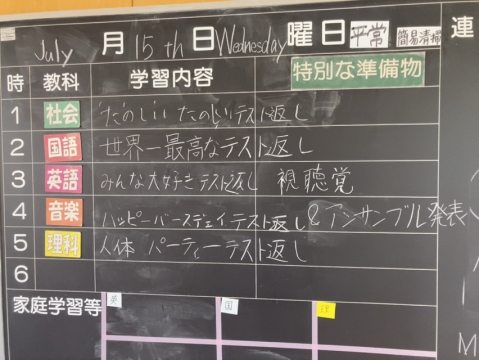 July 月 15th 日 Wednesday 曜日 平常 簡易清掃 連
時 教科 学習内容 特別な準備物
1 社会 たのしい たのしいテスト返し
2 国語 世界一最高なテスト返し
3 英語 みんな大好きテスト返し 視聴覚
4 音楽 ハッピーバースデイテスト返し &アンサンブル発表
5 理科 人体 パーティーテスト返し
6
家庭学習等 英 国 理
M